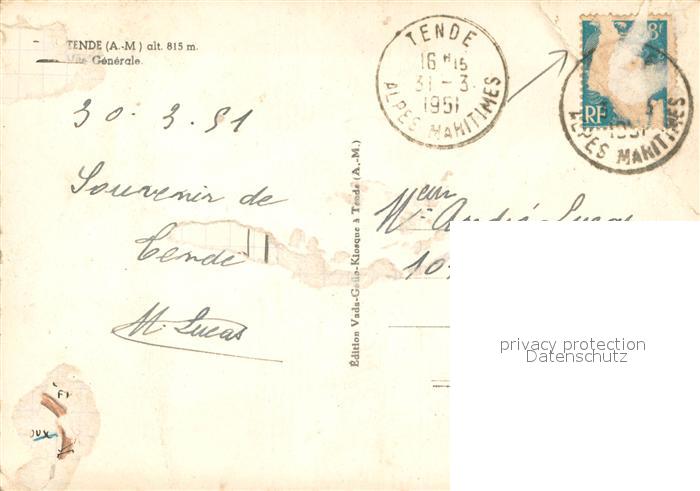 TENDE (A.-M.) alt. 815 m.
Générale.
30.3.51
Souvenir de
Tende
M. Lucas
Édition Vada-Gallo-Kiosque à Tende (A.-M.)
TENDE
16 H 15
31 - 3
1951
ALPES MARITIMES
8f
RF
1951
ALPES MARITIMES
Mr André Lucas
10
privacy protection
Datenschutz